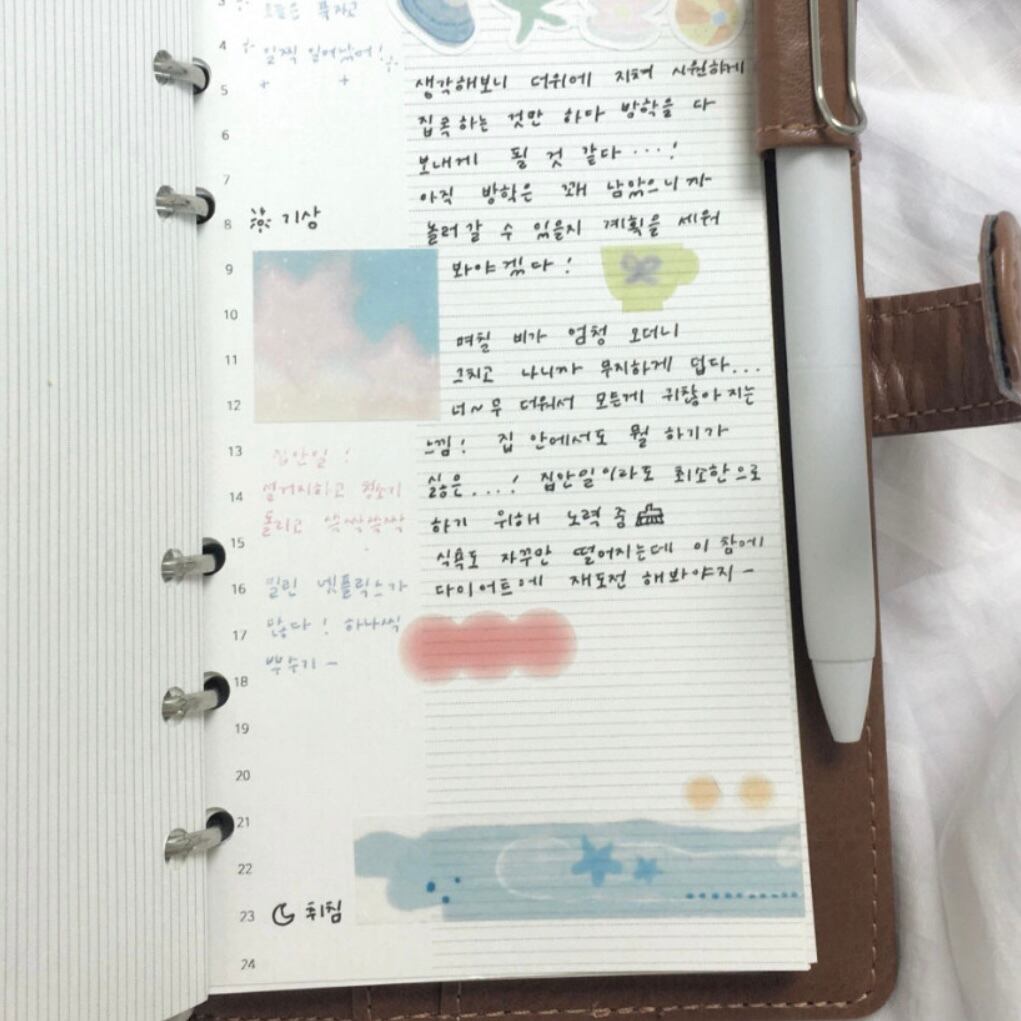 3
오늘은 푹자고
4
일찍 일어났어!
5
6
7
8 기상
9
10
11
12
13
집안일!
14
설거지하고 청소기
돌리고 쓱싹쓱싹
15
16
밀린 넷플릭스가
17
많다! 하나씩
뿌수기~
18
19
20
21
22
23 취침
24
생각해보니 더위에 지쳐 시원하게
집콕하는 것만 하다 방학을 다
보내게 될 것 같다...!
아직 방학은 꽤 남았으니까
놀러갈 수 있을지 계획을 세워
봐야겠다!
며칠 비가 엄청 오더니
그치고 나니까 무지하게 덥다...
너~무 더워서 모든게 귀찮아지는
느낌! 집 안에서도 뭘 하기가
싫은....! 집안일이라도 최소한으로
하기 위해 노력 중
식욕도 자꾸만 떨어지는데 이 참에
다이어트에 재도전 해봐야지~